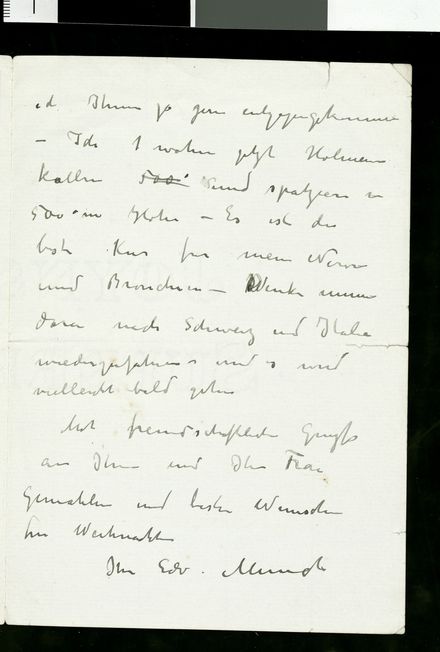 id Ihnen ja gern entgegengekommen
– Ich wohne jetzt Holmen
kollen 500 und spatziere in
500 m Hohe – Es ist die
beste Kur fur meine Nerven
und Bronchien – Denke immer
daran nach Schweitz und Italie
wiederzufahren – und es wird
vielleicht bald gehen
Mit freundschaftlichen Grüss
an Ihnen und Ihre Frau
Gemahlin und besten Wunschen
fur Weihnachten
Ihr Edv. Munch